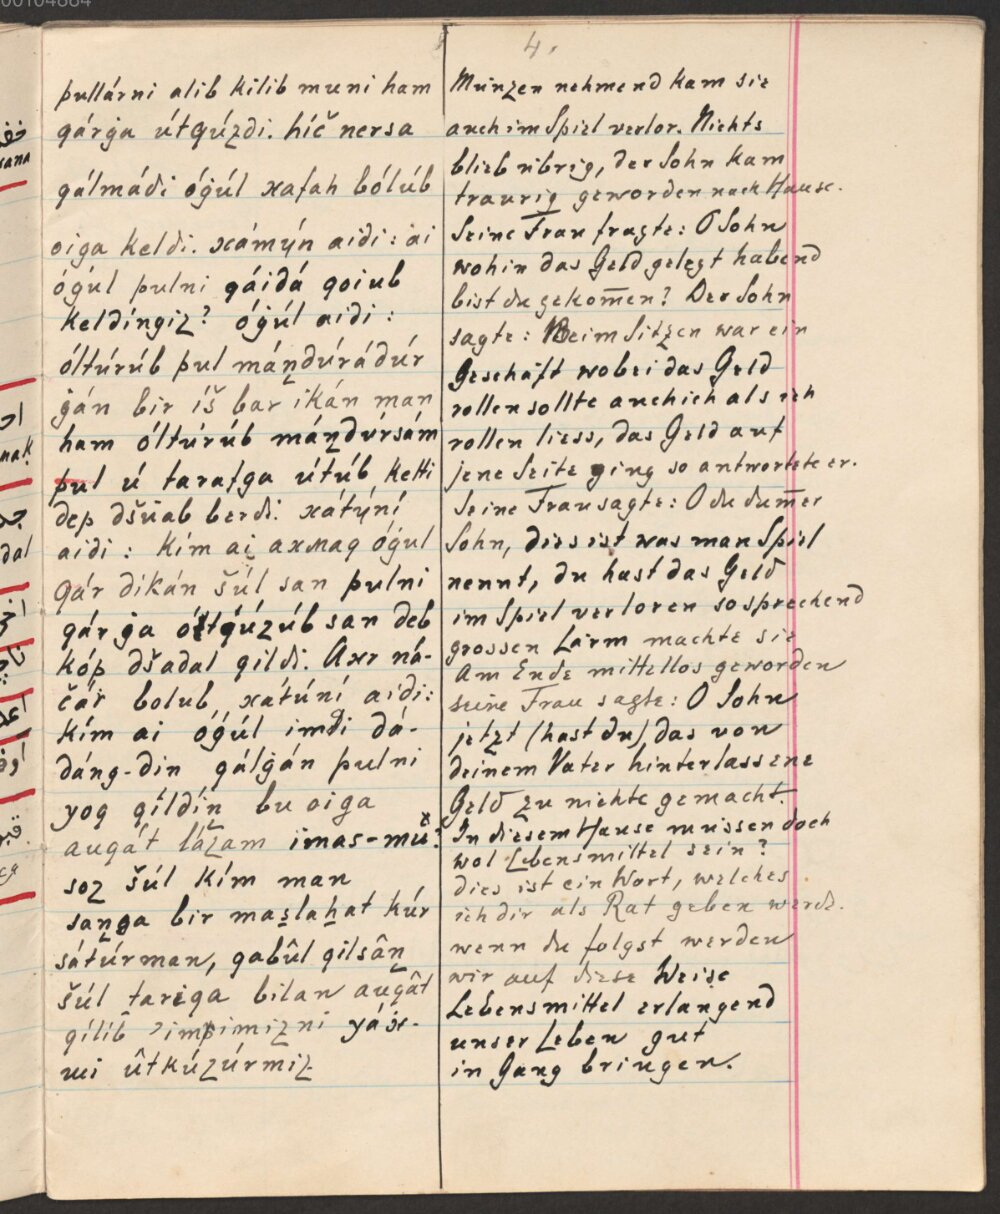 00104884
4.
pullárni alib kilib muni ham
qárġa útqúzdi. híč nersa
qálmádi óġúl xafah bólúb
oiga keldi. xámýn aidi: ai
óġúl pulni qáidá qoiub
keldíngiz? óġúl aidi:
óltúrúb pul máņdúrádúr
ġán bir íš bar ikán man
ham óltúrúb máņdúrsám
pul ú tarafga útúb ketti
dep dšŭab berdi. xátýní
aidi: kím ai axmaq óġul
qár dikán šúl san pulni
qár ġa ótqúzúb san deb
kóp dšadal qildi. Axr ná-
čár bolub, xátúní aidi:
kím ai óġúl imdi dá-
dáng-din qálġán pulni
yoq qíldín bu oiga
auqát lázam imas-mu?
soz šúl kím man
saņga bir maslaḥat kúr
sátúrman, qabûl qilsâņ
šúl tariqa bilan auqât
qílíb 'impimizni yáx-
ui ûtkúzúrmiz
Münzen nehmend kam sie
auch im Spiel verlor. Nichts
blieb übrig, der Sohn kam
traurig geworden nach Hause.
Seine Frau fragte: O Sohn
wohin das Geld gelegt habend
bist du gekom̅en? Der Sohn
sagte: Beim Sitzen war ein
Geschäft wobei das Geld
rollen sollte auch ich als ich
rollen liess, das Geld auf
jene Seite ging so antwortete er.
Seine Frau sagte: O du dum̅er
Sohn, dies ist was man Spiel
nennt, du hast das Geld
im Spiel verloren so sprechend
grossen Lärm machte sie
Am Ende mittellos geworden
seine Frau sagte: O Sohn
jetzt (hast du) das von
deinem Vater hinterlassene
Geld zu nichte gemacht.
In diesem Hause müssen doch
wol Lebensmittel sein?
dies ist ein Wort, welches
ich dir als Rat geben werde.
wenn du folgst werden
wir auf diese Weise
Lebensmittel erlangend
unser Leben gut
in Gang bringen.